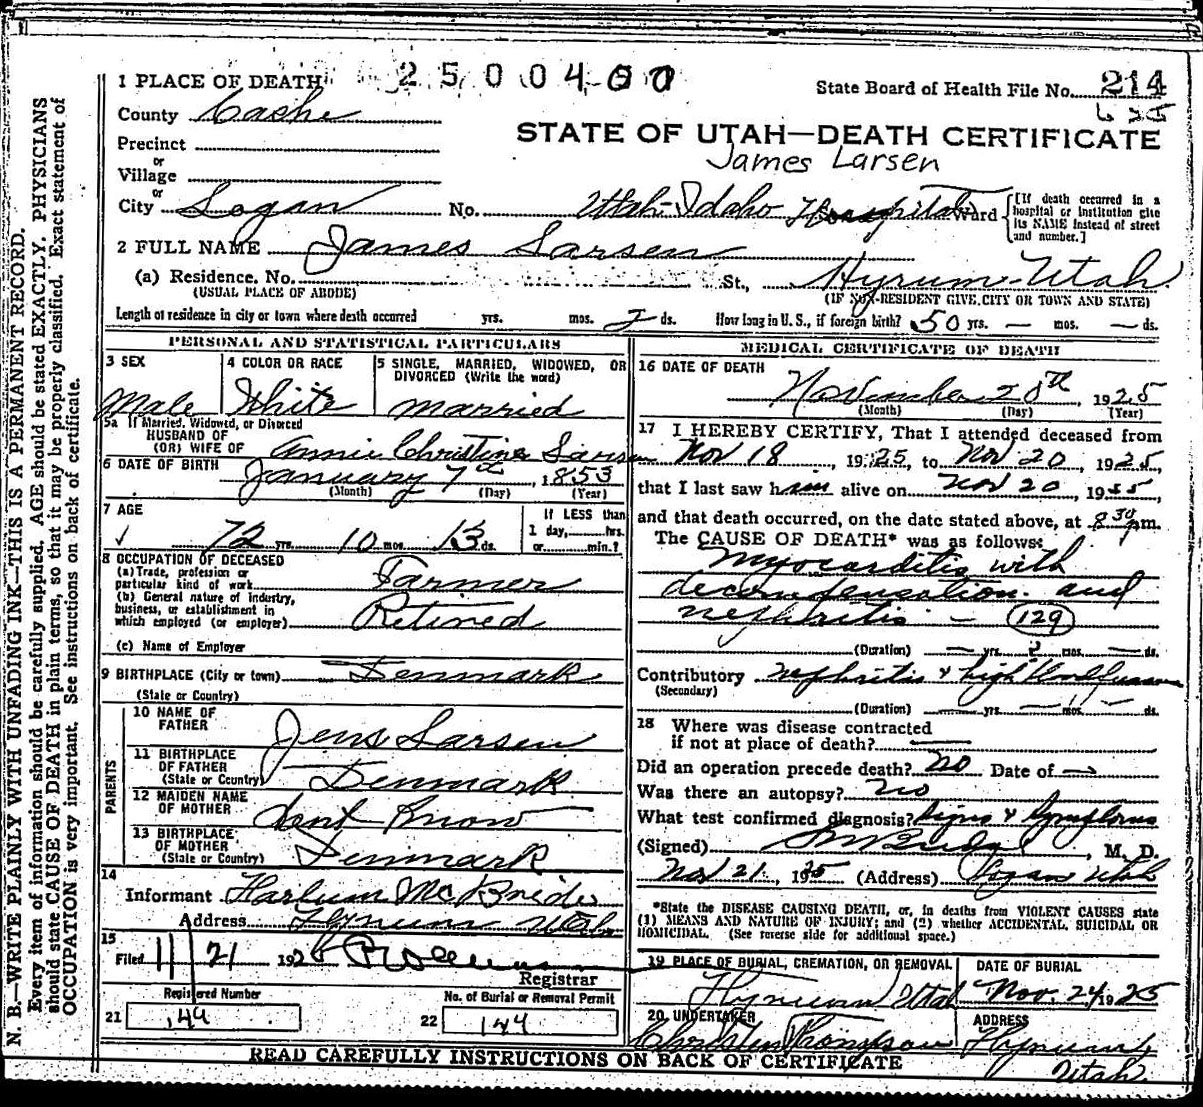 2500400
1 PLACE OF DEATH
State Board of Health File No. 214
County Cache
STATE OF UTAH—DEATH CERTIFICATE
Precinct
James Larsen
or
Village
or
City Logan No. Utah-Idaho Hospital Ward
[If death occurred in a hospital or institution give its NAME instead of street and number.]
2 FULL NAME James Larsen
(a) Residence. No. St., Hyrum-Utah
(USUAL PLACE OF ABODE) (IF NON-RESIDENT GIVE CITY OR TOWN AND STATE)
Length of residence in city or town where death occurred yrs. mos. 2 ds. How long in U.S., if foreign birth? 50 yrs. — mos. — ds.
PERSONAL AND STATISTICAL PARTICULARS
3 SEX
Male
4 COLOR OR RACE
White
5 SINGLE, MARRIED, WIDOWED, OR DIVORCED (Write the word)
married
5a If Married, Widowed, or Divorced
HUSBAND OF
(OR) WIFE OF Annie Christine Larsen
6 DATE OF BIRTH January 7th, 1853
(Month) (Day) (Year)
7 AGE
72 yrs. 10 mos. 13 ds.
If LESS than
1 day, hrs.
or min.?
8 OCCUPATION OF DECEASED
(a) Trade, profession or
particular kind of work Farmer
(b) General nature of industry,
business, or establishment in
which employed (or employer) Retired
(c) Name of Employer
9 BIRTHPLACE (City or town) Denmark
(State or Country)
PARENTS
10 NAME OF
FATHER Jens Larsen
11 BIRTHPLACE
OF FATHER
(State or Country) Denmark
12 MAIDEN NAME
OF MOTHER dont Know
13 BIRTHPLACE
OF MOTHER
(State or Country) Denmark
14
Informant Harlum McBride
Address Hyrum Utah
15
Filed 11/21 192
Registrar
Registered Number
21 144
No. of Burial or Removal Permit
22 144
MEDICAL CERTIFICATE OF DEATH
16 DATE OF DEATH
November 20th 1925
(Month) (Day) (Year)
17 I HEREBY CERTIFY, That I attended deceased from
Nov 18, 1925, to Nov 20, 1925,
that I last saw him alive on Nov 20, 19
and that death occurred, on the date stated above, at 8 30 pm.
The CAUSE OF DEATH* was as follows:
myocarditis with
decompensation and
nephritis — 129
(Duration) — yrs. 2 mos. — ds.
Contributory nephritis & high
(Secondary)
(Duration) yrs. ds.
18 Where was disease contracted
if not at place of death? —
Did an operation precede death? no Date of —
Was there an autopsy? no
What test confirmed diagnosis? Signs & Symptoms
(Signed) , M. D.
Nov 21, 1925 (Address) Logan Utah
*State the DISEASE CAUSING DEATH, or, in deaths from VIOLENT CAUSES state
(1) MEANS AND NATURE OF INJURY; and (2) whether ACCIDENTAL, SUICIDAL OR
HOMICIDAL. (See reverse side for additional space.)
19 PLACE OF BURIAL, CREMATION, OR REMOVAL
Hyrum Utah
DATE OF BURIAL
Nov. 24 1925
20. UNDERTAKER
Thompson
ADDRESS
Hyrum,
Utah.
READ CAREFULLY INSTRUCTIONS ON BACK OF CERTIFICATE
N. B.—WRITE PLAINLY WITH UNFADING INK—THIS IS A PERMANENT RECORD.
Every item of information should be carefully supplied. AGE should be stated EXACTLY. PHYSICIANS
should state CAUSE OF DEATH in plain terms, so that it may be properly classified. Exact statement of
OCCUPATION is very important. See instructions on back of certificate.